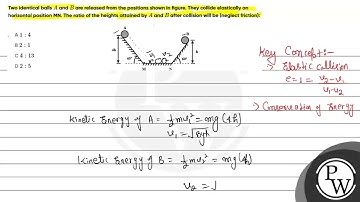 Two identical balls A and B are released from the positions shown in figure. They collide elastically on
horizontal position MN. The ratio of the heights attained by A and B after collision will be (neglect friction):
A 1 : 4
B 2 : 1
C 4 : 13
D 2 : 5
Key Concept:-
→ Elastic collision
e = 1 = v₂ - v₁
u₁ - u₂
→ Conservation of Energy
Kinetic Energy of A = ½ mu₁² = mg (4h)
v₁ = √8gh
Kinetic Energy of B = ½ mu₂² = mg (h)
v₂ = √
PW